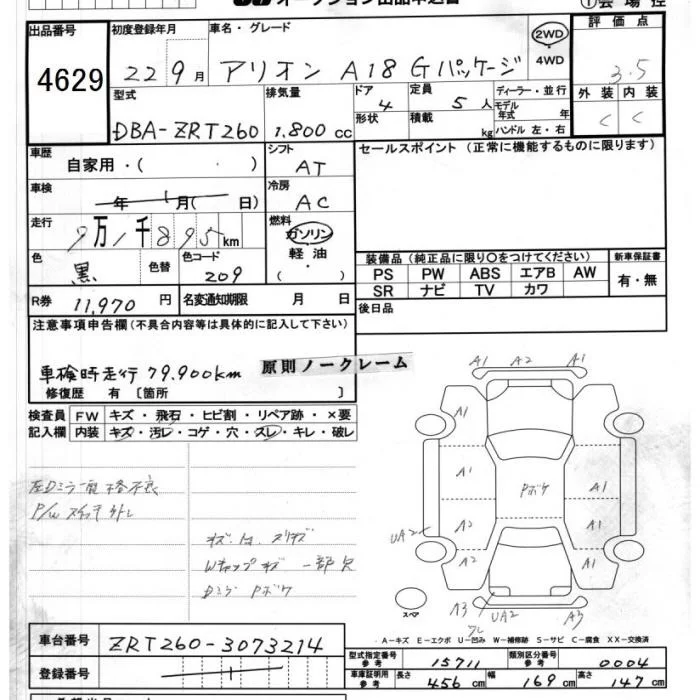 オークション出品申込書
出品番号 4629
初度登録年月 22 9月
車名・グレード アリオン A18 Gパッケージ
2WD・4WD
評価点 3.5
外装 C 内装 C
型式 DBA-ZRT260
排気量 1.800 cc
ドア 4 形状
定員 5人 積載 kg
ディーラー・並行
モデル年式 年
ハンドル 左・右
車歴 自家用・( )
シフト AT
セールスポイント (正常に機能するものに限ります)
車検 年 月( 日)
冷房 AC
走行 9万1千895km
燃料 ガソリン・軽油・( )
色 黒 色替 色コード 209
装備品 (純正品に限り○をつけてください)
新車保証書 有・無
PS PW ABS エアB AW
SR ナビ TV カワ
R券 11,970円 名変通知期限 月 日
後日品
注意事項申告欄 (不具合内容等は具体的に記入して下さい)
車検時走行 79.900km
原則ノークレーム
修復歴 有 〔箇所 〕
検査員記入欄
FW キズ・飛石・ヒビ割・リペア跡・×要
内装 キズ・汚レ・コゲ・穴・スレ・キレ・破レ
A1 A2 A1
A1
A1 A1
Pボケ
UA2 A2 A1
A2 A1
A3 UA2 A3
スペア
P/W スイッチ
Wキャップ キズ 一部欠
Dミラー Pボケ
A-キズ E-エクボ U-凹み W-補修跡 S-サビ C-腐食 XX-交換済
車台番号 ZRT260-3073214
登録番号
型式指定番号 参考 15711
類別区分番号 参考 0004
車庫証明用 参考 長さ 456cm 幅 169cm 高さ 147cm